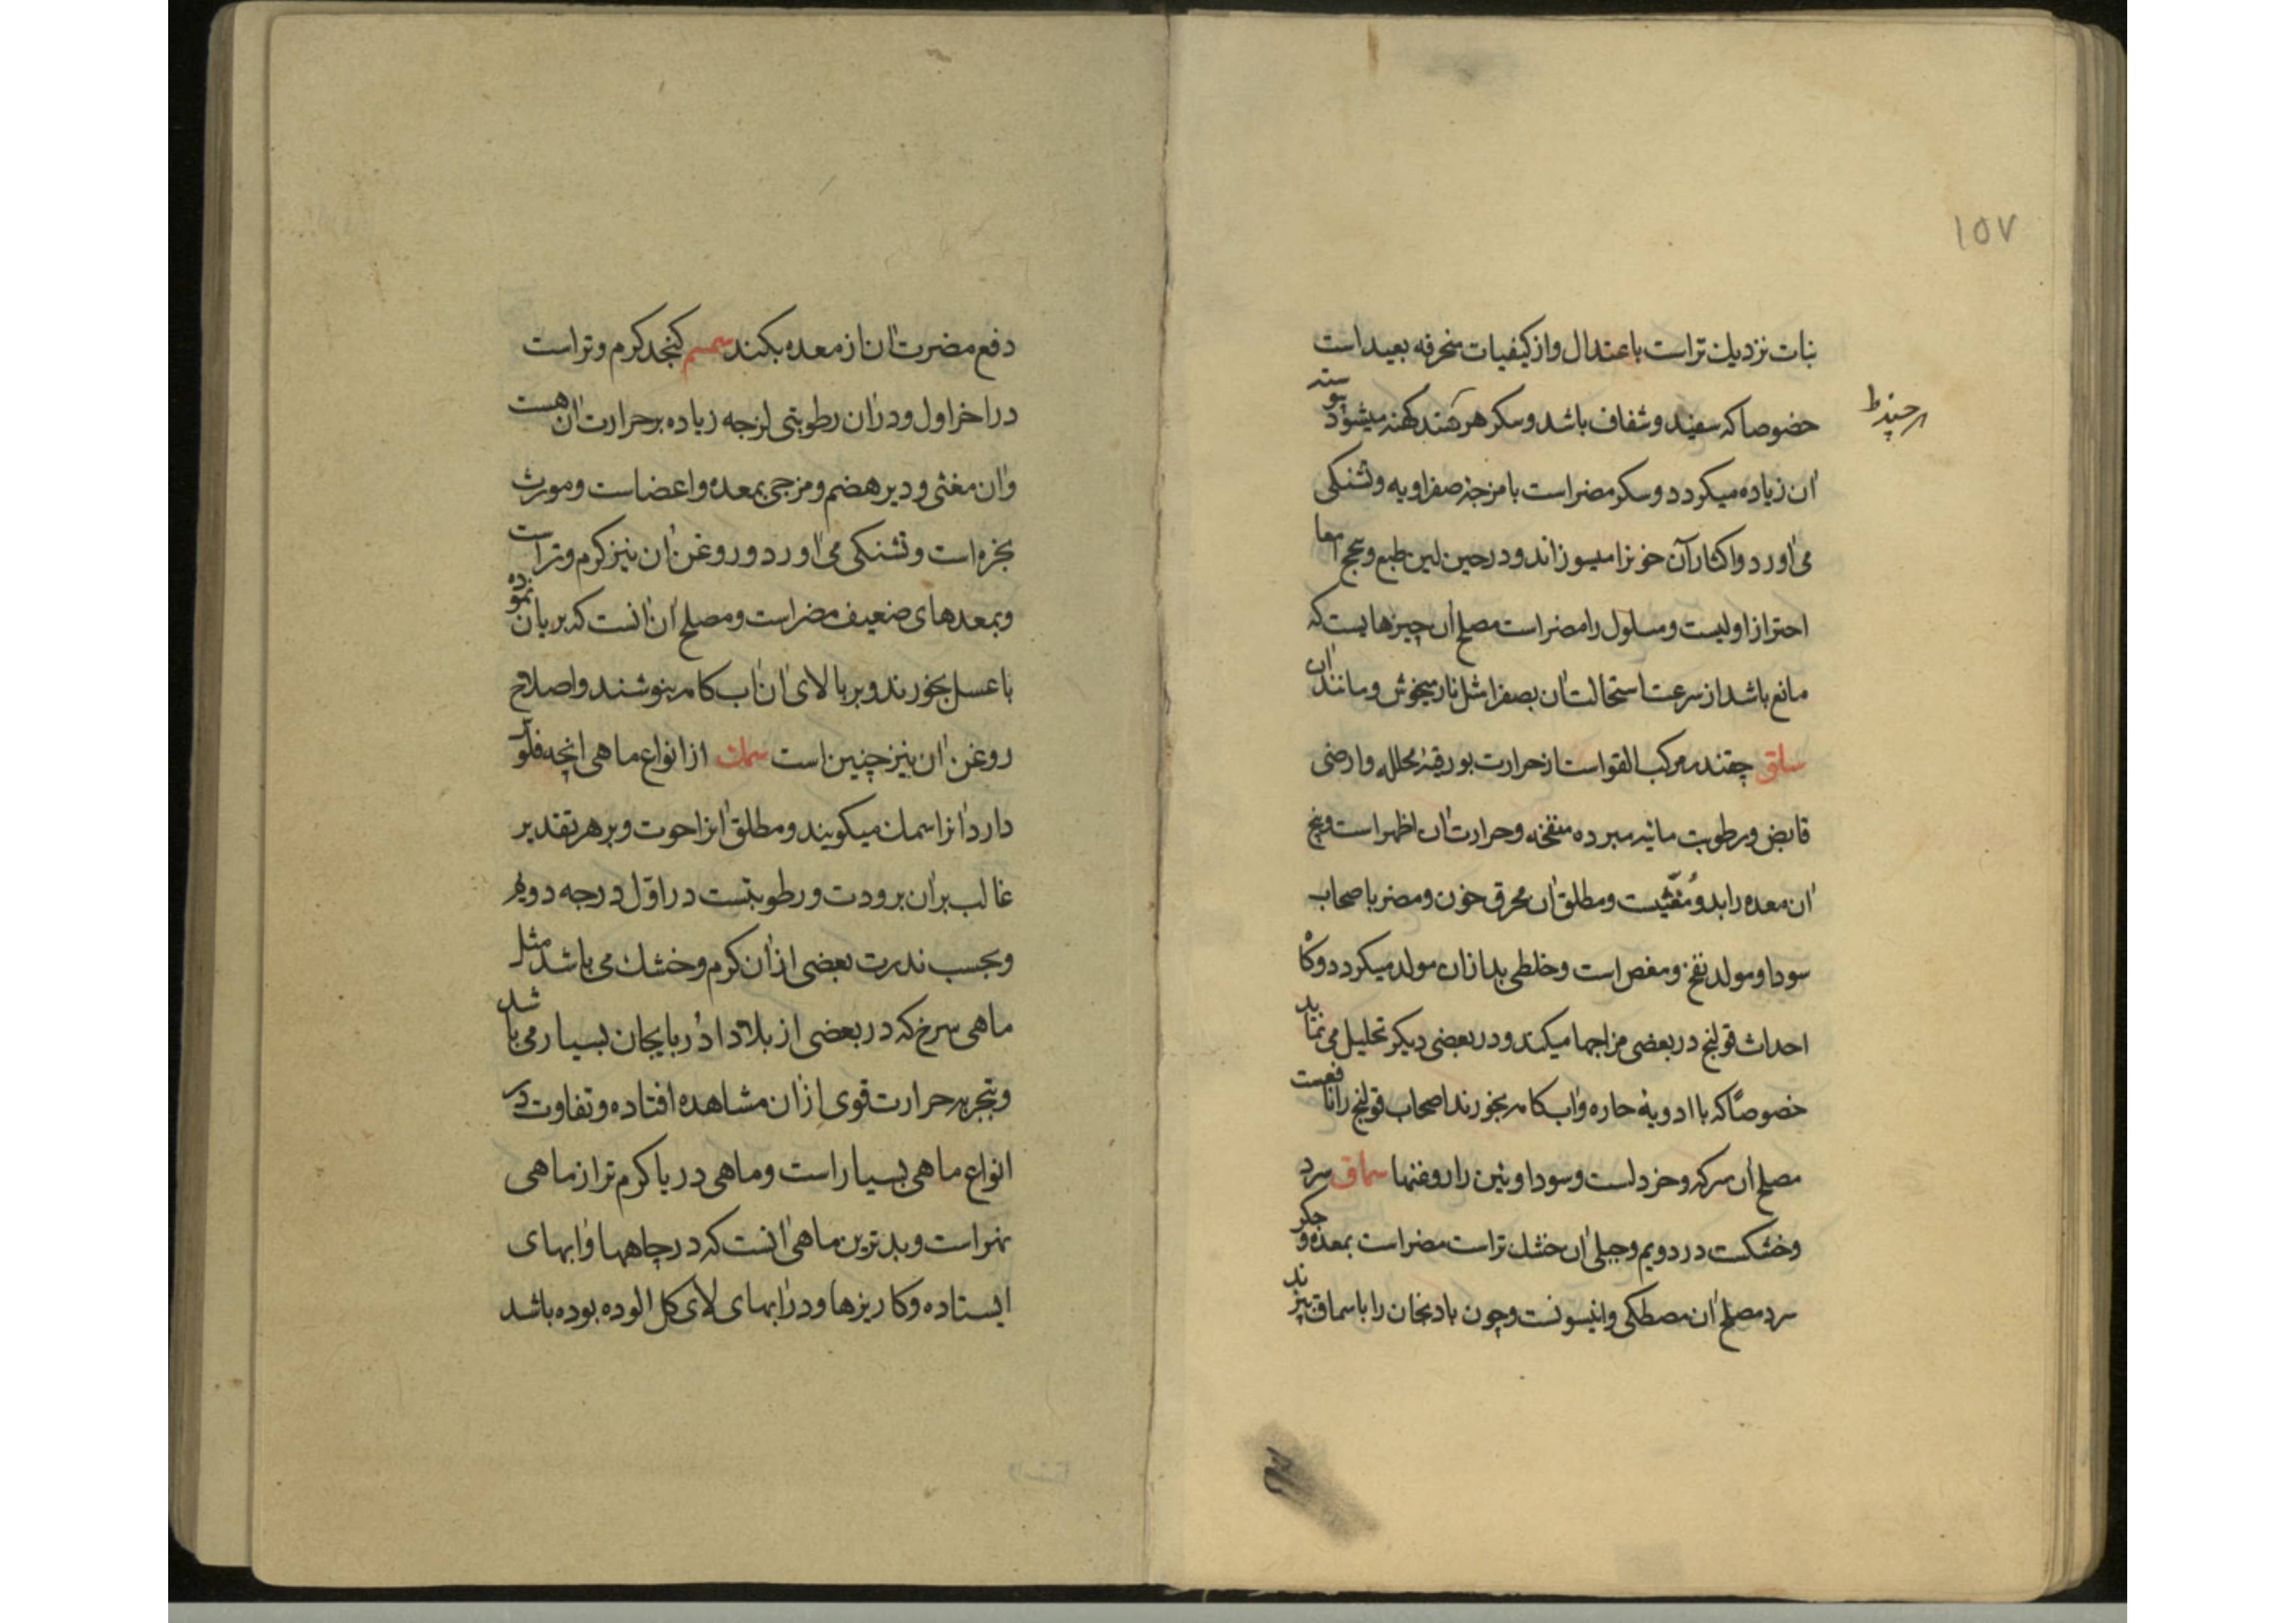 ۱۵۷
نبات نزدیک تراست باعتدال واز کیفیات منحرفه بعید است
خصوصا که سفید وشفاف باشد وسکر هرچند کهنه میشود یبوسته
هرچند ط
ان زیاده میکردد وسکر مضراست بامزجۀ صفراویه وتشنکی
می اورد واکثار آن خونرا میسوزاند ودرحین لین طبع وسحج امعا
احتراز اولیست ومسلول را مضراست مصلح ان چیزهایست که
مانع باشد از سرعت استحالت ان بصفرا مثل نار میخوش ومانند ان
سلق چقندر مرکب القواست از حرارت بورقیۀ محلله وارضی
قابض ورطوبت مائیه مبرده منفخه وحرارت ان اظهر است وبیخ
ان معده را بد ومُغَثّیست ومطلق ان محرق خون ومضر باصحاب
سودا ومولد نفخ ومغص است وخلطی بد ازان مولد میکردد وکاه
احداث قولنج در بعضی مزاجها میکند ودر بعضی دیکر تحلیل می نماید
خصوصًا که با ادویۀ حاره واب کامه بخورند اصحاب قولنج را نافعست
مصلح ان سرکه وخردلست وسوداویین را روغنها سماق سرد
وخشکست در دویم وجبلی ان خشک تراست مضراست بمعده وجکر
سرد مصلح ان مصطکی وانیسونست وچون بادنجان را باسماق بپزند
دفع مضرت ان از معده بکند سمسم کنجد کرم وتراست
در اخر اول ودران رطوبتی لزجه زیاده برحرارت ان هست
وان مغثی ودیر هضم ومرخی بمعده واعضاست ومورث
بخره است وتشنکی می اورد وروغن ان نیز کرم وتراست
وبمعدهای ضعیف مضراست ومصلح ان انست که بریان نموده
باعسل بخورند وبر بالای ان اب کامه بنوشند واصلاح
روغن ان نیز چنین است سمک از انواع ماهی انچه فلوس
دارد انرا سمک میکویند ومطلق انرا حوت وبر هر تقدیر
غالب بران برودت ورطوبتست در اوّل درجه دویم
وبحسب ندرت بعضی ازان کرم وخشک می باشد مثل
ماهی سرخ که در بعضی از بلاد اذربایجان بسیار می باشد
وبتجربه حرارت قوی ازان مشاهده افتاده وتفاوت در
انواع ماهی بسیار است وماهی دریا کرم تر از ماهی
نهراست وبدترین ماهی انست که در چاهها وابهای
ایستاده وکاریزها ودر ابهای لای کل الوده بوده باشد